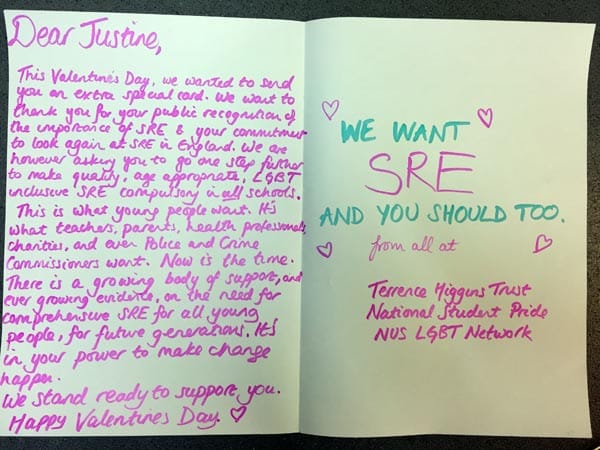 Dear Justine,
This Valentine's Day, we wanted to send
you an extra special card. We want to
thank you for your public recognition of
the importance of SRE & your commitment
to look again at SRE in England. We are
however asking you to go one step further
to make quality, age appropriate, LGBT
inclusive SRE compulsory in all schools.
This is what young people want. It's
what teachers, parents, health professionals,
charities, and even Police and Crime
Commissioners want. Now is the time.
There is a growing body of support, and
ever growing evidence, on the need for
comprehensive SRE for all young
people, for future generations. It's
in your power to make change
happen.
We stand ready to support you.
Happy Valentines Day. ♡
WE WANT
SRE
AND YOU SHOULD TOO.
from all at
Terrence Higgins Trust
National Student Pride
NUS LGBT Network